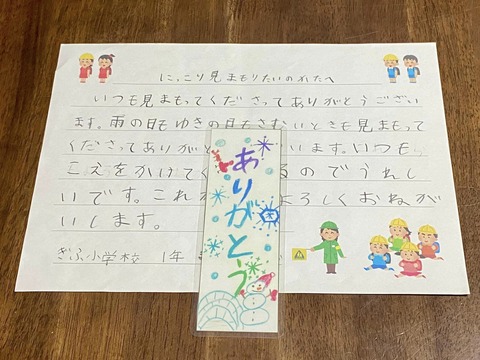 にっこり見まもりたいのかたへ
いつも見まもってくださってありがとうござい
ます。雨の日もゆきの日もさむいときも見まもって
くださってありがと います。いつも
こえをかけてく るのでうれし
いです。これか よろしくおねが
いします。
ぎふ小学校 1年
ありがとう